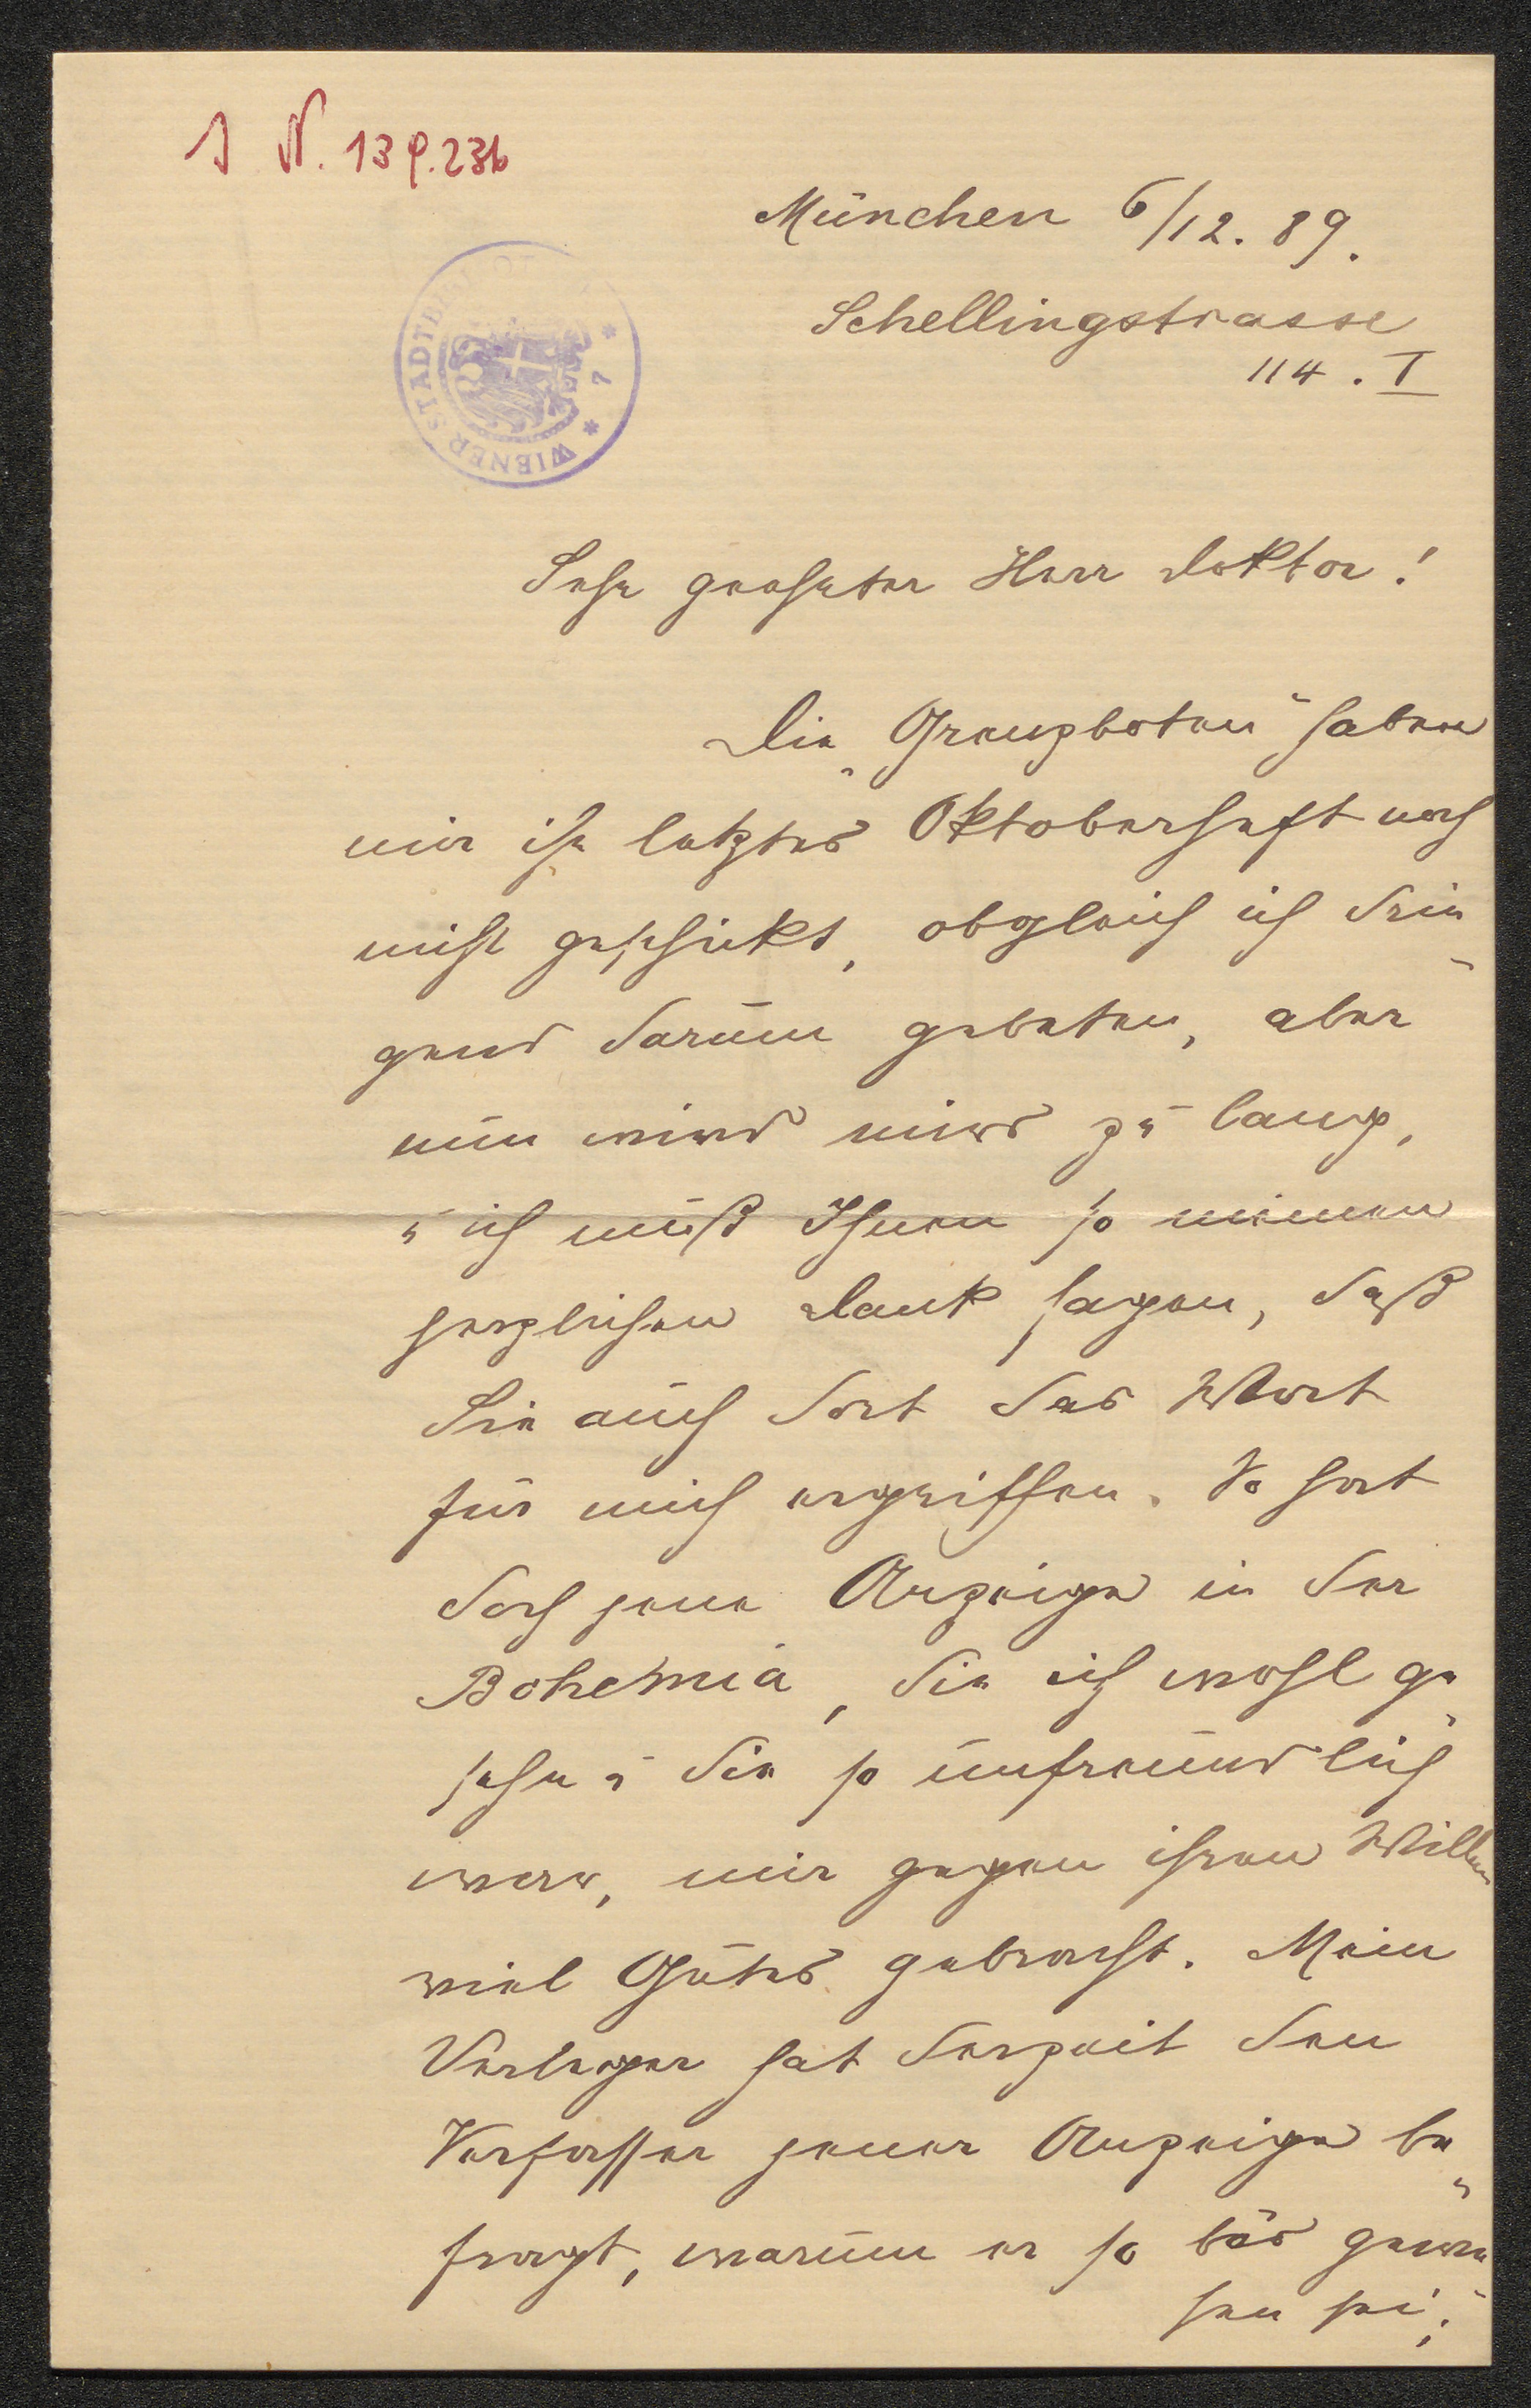 J N. 139.236
München 6/12. 89.
Schellingstrasse
114. I
WIENER STADTBI
* 7 *
Sehr geehrter Herr Doktor!
Die „Grenzboten“ haben
mir ihr letztes Oktoberheft noch
nicht geschickt, obgleich ich drin-
gend darum gebeten, aber
nun wird mirs zu lang,
u ich muß Ihnen so meinen
herzlichen Dank sagen, daß
Sie auch dort das Wort
für mich ergriffen. So hat
doch jene Anzeige in der
Bohemia, die ich wohl ge-
sehn u die so unfreundlich
war, mir gegen ihren Willen
viel Gutes gebracht. Mein
Verleger hat derzeit den
Verfasser jener Anzeige be-
fragt, warum er so bös gewe-
sen sei;